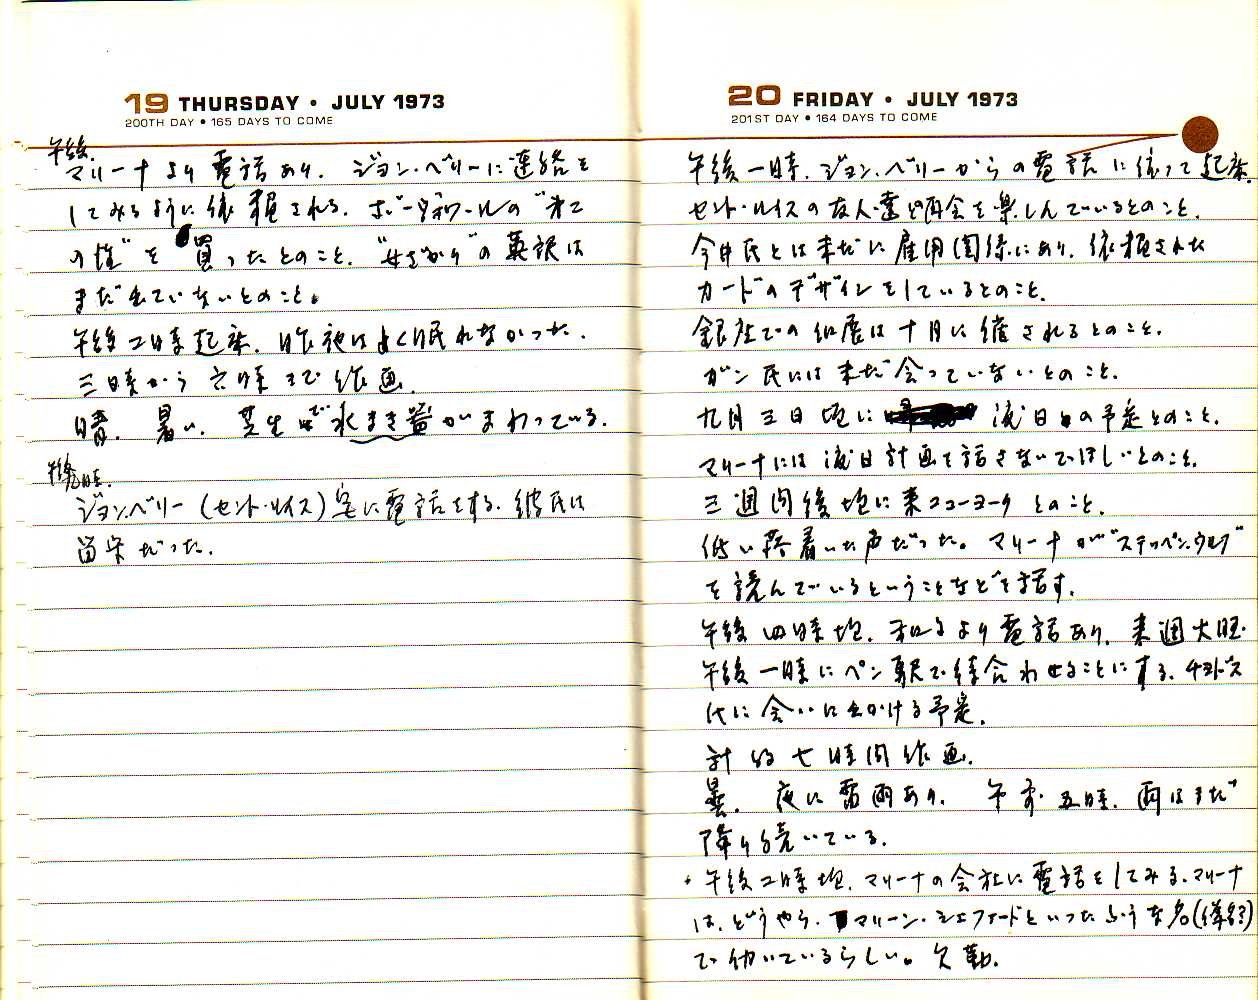 19 THURSDAY • JULY 1973
200TH DAY • 165 DAYS TO COME
午後、
マリーナより電話あり、ジョン・ベリーに連絡を
してみるように依頼される。ボーヴォワールの“第二
の性”を買ったとのこと、“女ざかり”の英訳は
まだ出ていないとのこと。
午後2時起床、昨夜はよく眠れなかった。
三時から六時まで作画。
晴、暑い、芝生で水まき器がまわっている。
ジョン・ベリー(セント・ルイス)宅に電話をする。彼氏は
留守だった。
20 FRIDAY • JULY 1973
201ST DAY • 164 DAYS TO COME
午後一時、ジョン・ベリーからの電話に依って起床。
セント・ルイスの友人達と再会を楽しんでいるとのこと、
今井氏とは未だに雇用関係にあり、依頼された
カードのデザインをしているとのこと、
銀座での個展は十月に催されるとのこと、
ガン氏には未だ会っていないとのこと、
九月三日頃に 渡日の予定とのこと、
マリーナには渡日計画を話さないでほしいとのこと、
三週間後頃に来ニューヨークとのこと、
低い落着いた声だった。マリーナが“ステッペン・ウルフ”
を読んでいるということなどを話す。
午後四時頃、和子より電話あり、来週火曜
午後一時にペン駅で待合わせることにする、
氏に会いに出かける予定。
計約七時間作画。
曇、夜に雷雨あり、午前五時、雨はまだ
降り続いている。
・午後2時頃、マリーナの会社に電話をしてみる、マリーナ
は、どうやら、マリーン・シェファードといったような名(偽名?)
で働いているらしい。欠勤。